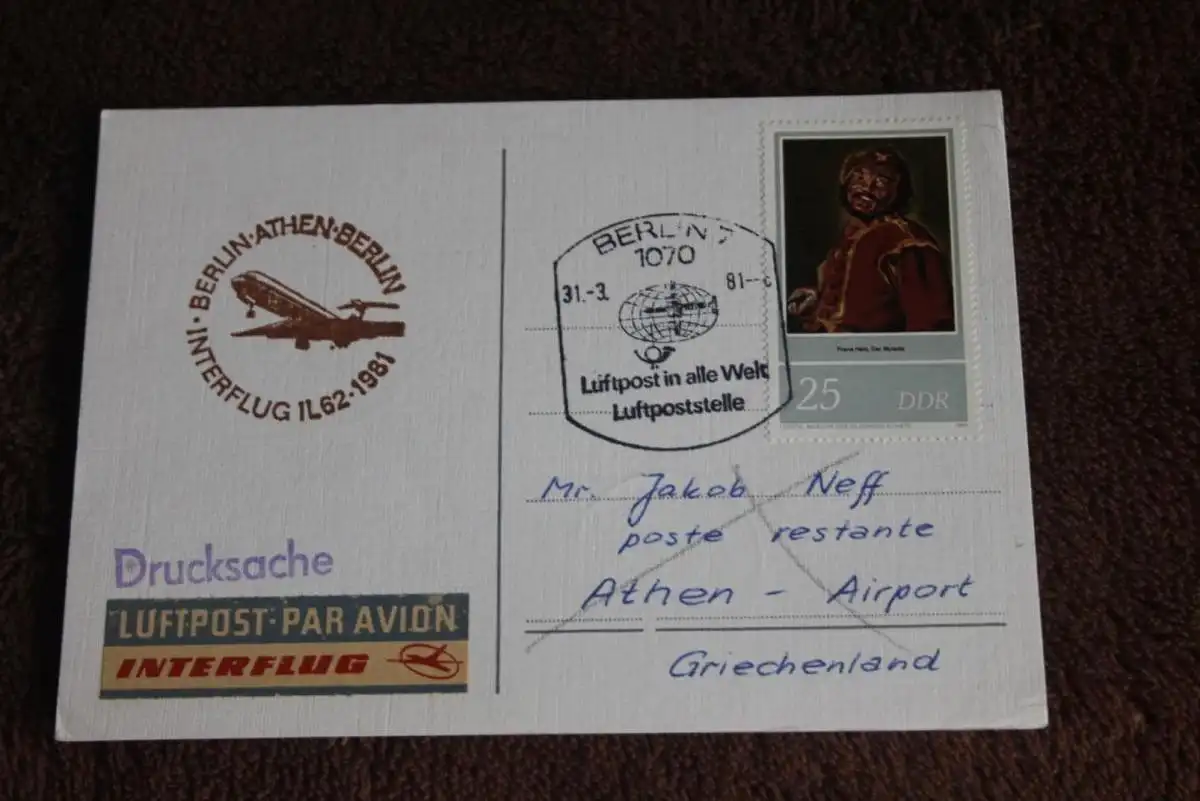 INTERFLUG IL62·1981·BERLIN·ATHEN·BERLIN
Drucksache
LUFTPOST·PAR AVION
INTERFLUG
BERLIN 7
1070
31.-3. 81--c
Luftpost in alle Welt
Luftpoststelle
Frans Hals, Der Mulatte
25 DDR
Mr. Jakob Neff
poste restante
Athen - Airport
Griechenland